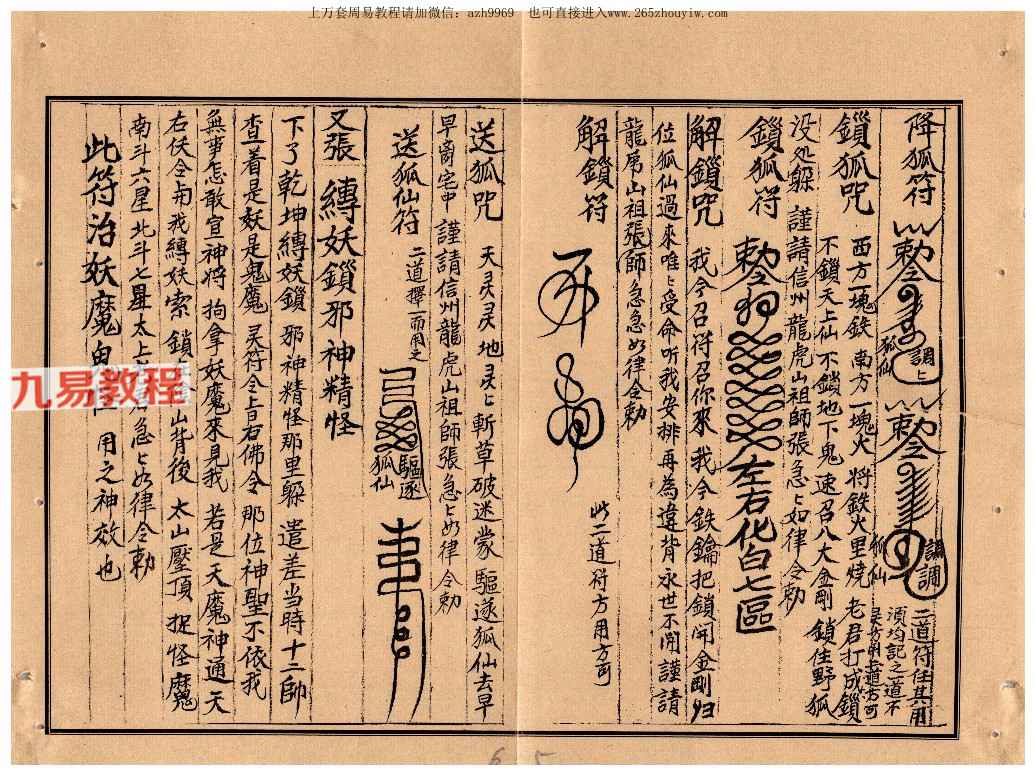 上万套周易教程请加微信：azh9969　也可直接进入www.265zhouyiw.com
降狐符
狐仙
調
狐仙
調調
二道符任其用
須均記之道不
鎖狐咒
西方一塊鉄 南方一塊火 将鉄火里燒 老君打成鎖
不鎖天上仙 不鎖地下鬼 速召八大金剛 鎖住野狐
没处躲 謹請信州龍虎山祖師張急急如律令勅
鎖狐符
左右化白七區
解鎖咒 我今召符召你來 我今鉄鑰把鎖開 金剛归
位狐仙過來唯ヒ受命听我安排 再為違背永世不開 謹請
龍虎山祖張師 急急如律令勅
解鎖符
此二道符方用方可
送狐咒 天灵灵 地灵灵 斬草破迷蒙 驅逐狐仙去早
早离宅中 謹請信州龍虎山祖師張急ヒ如律令勅
送狐仙符
二道擇一而用之
驅逐
狐仙
又張 縛妖鎖邪神精怪
下了乾坤縛妖鎖 邪神精怪那里躲 遣差当時十二帥
查看是妖是鬼魔 灵符令上右佛令 那位神聖不依我
無事怎敢宣神将 拘拿妖魔來見我 若是天魔神通天
右伏令我縛妖索 鎖山背後 太山壓頂捉怪魔
南斗六星北斗七星太上急ヒ如律令勅
此符治妖魔鬼怪 用之神效也
九易教程
6 5